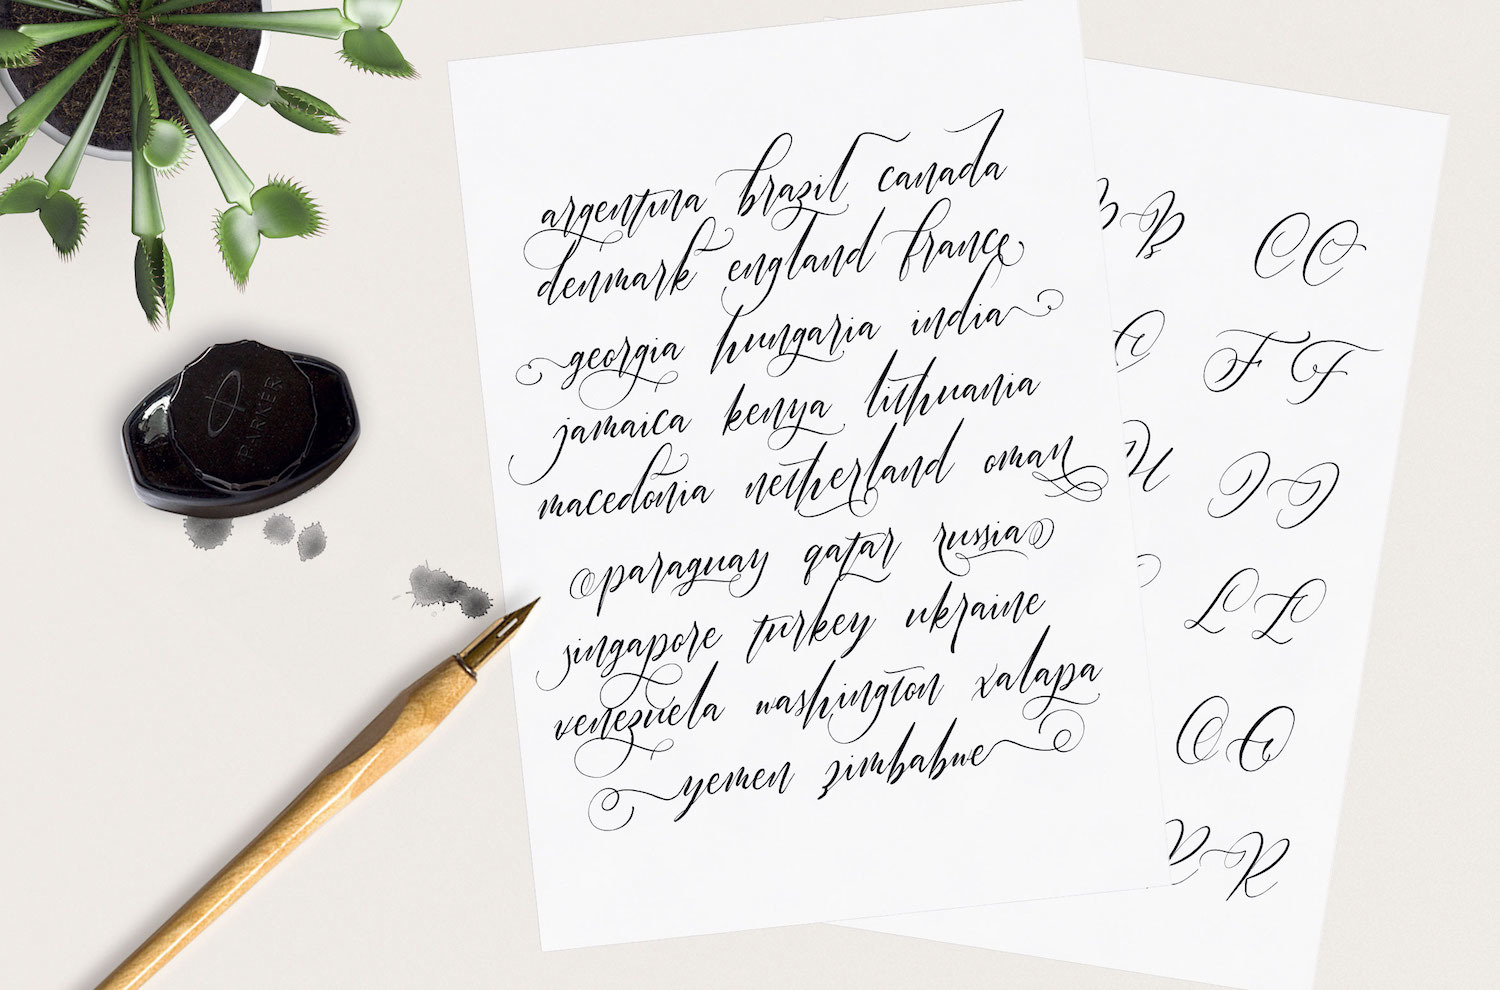 argentina brazil canada
denmark england france
georgia hungaria india
jamaica kenya lithuania
macedonia netherland oman
paraguay qatar russia
singapore turkey ukraine
venezuela washington xalapa
yemen zimbabwe
B B C C
F F
I I
L L
O O
R R
PARKER